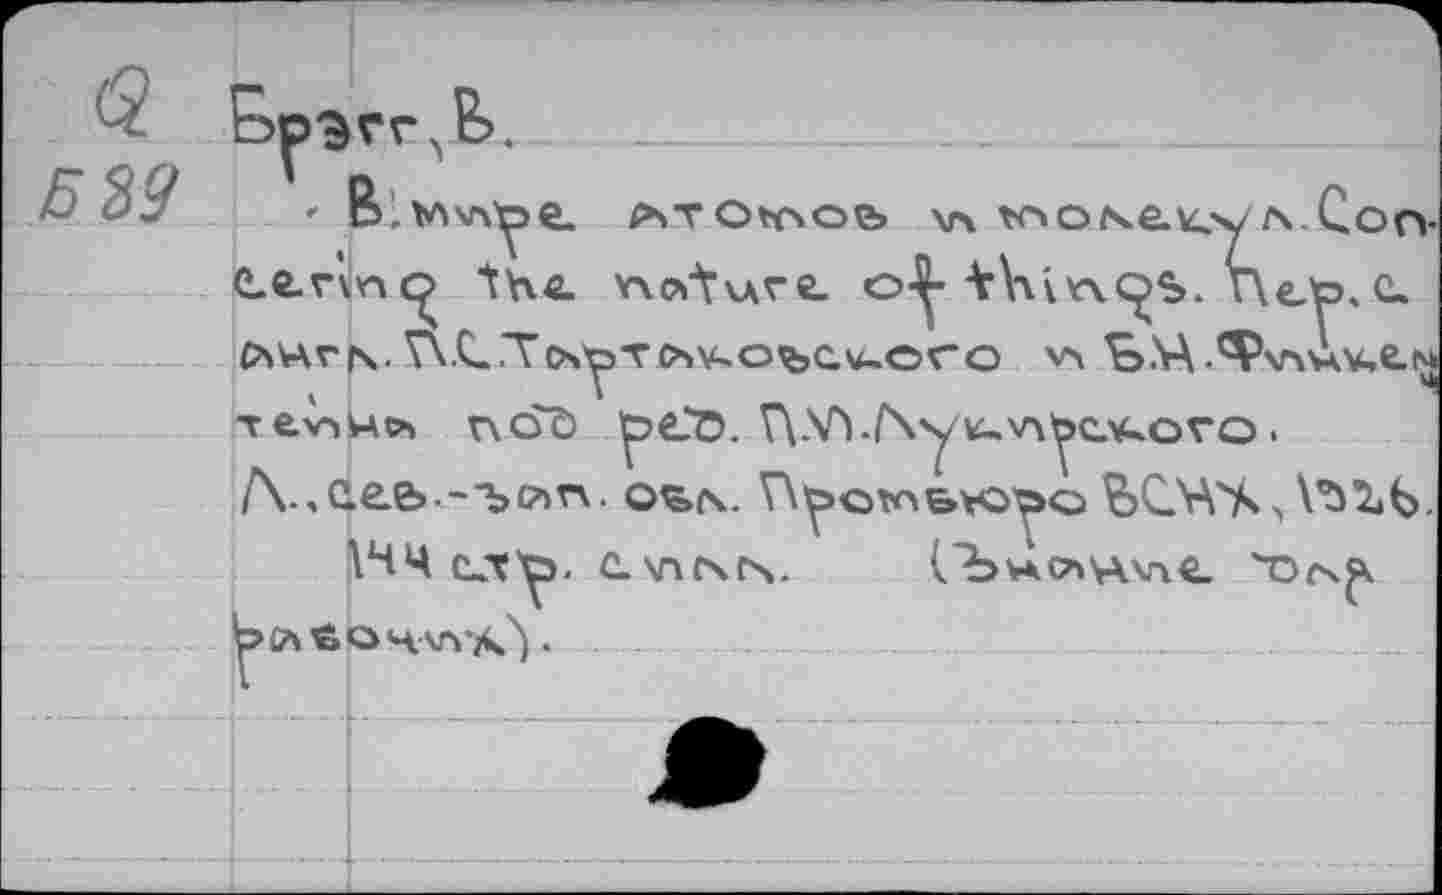 Б89
Брэгг,В.
В мире атомов и молекул. Con-
cering the nature of things. Пер. с
англ. П.С.Тартаковского и Б.М.Финкел
тейна под ред. П.И.Лукирского.
Л., сев.-зап. обл. Промбюро ВСНХ, 1926.
144 стр. с илл. (Знание для
рабочих).